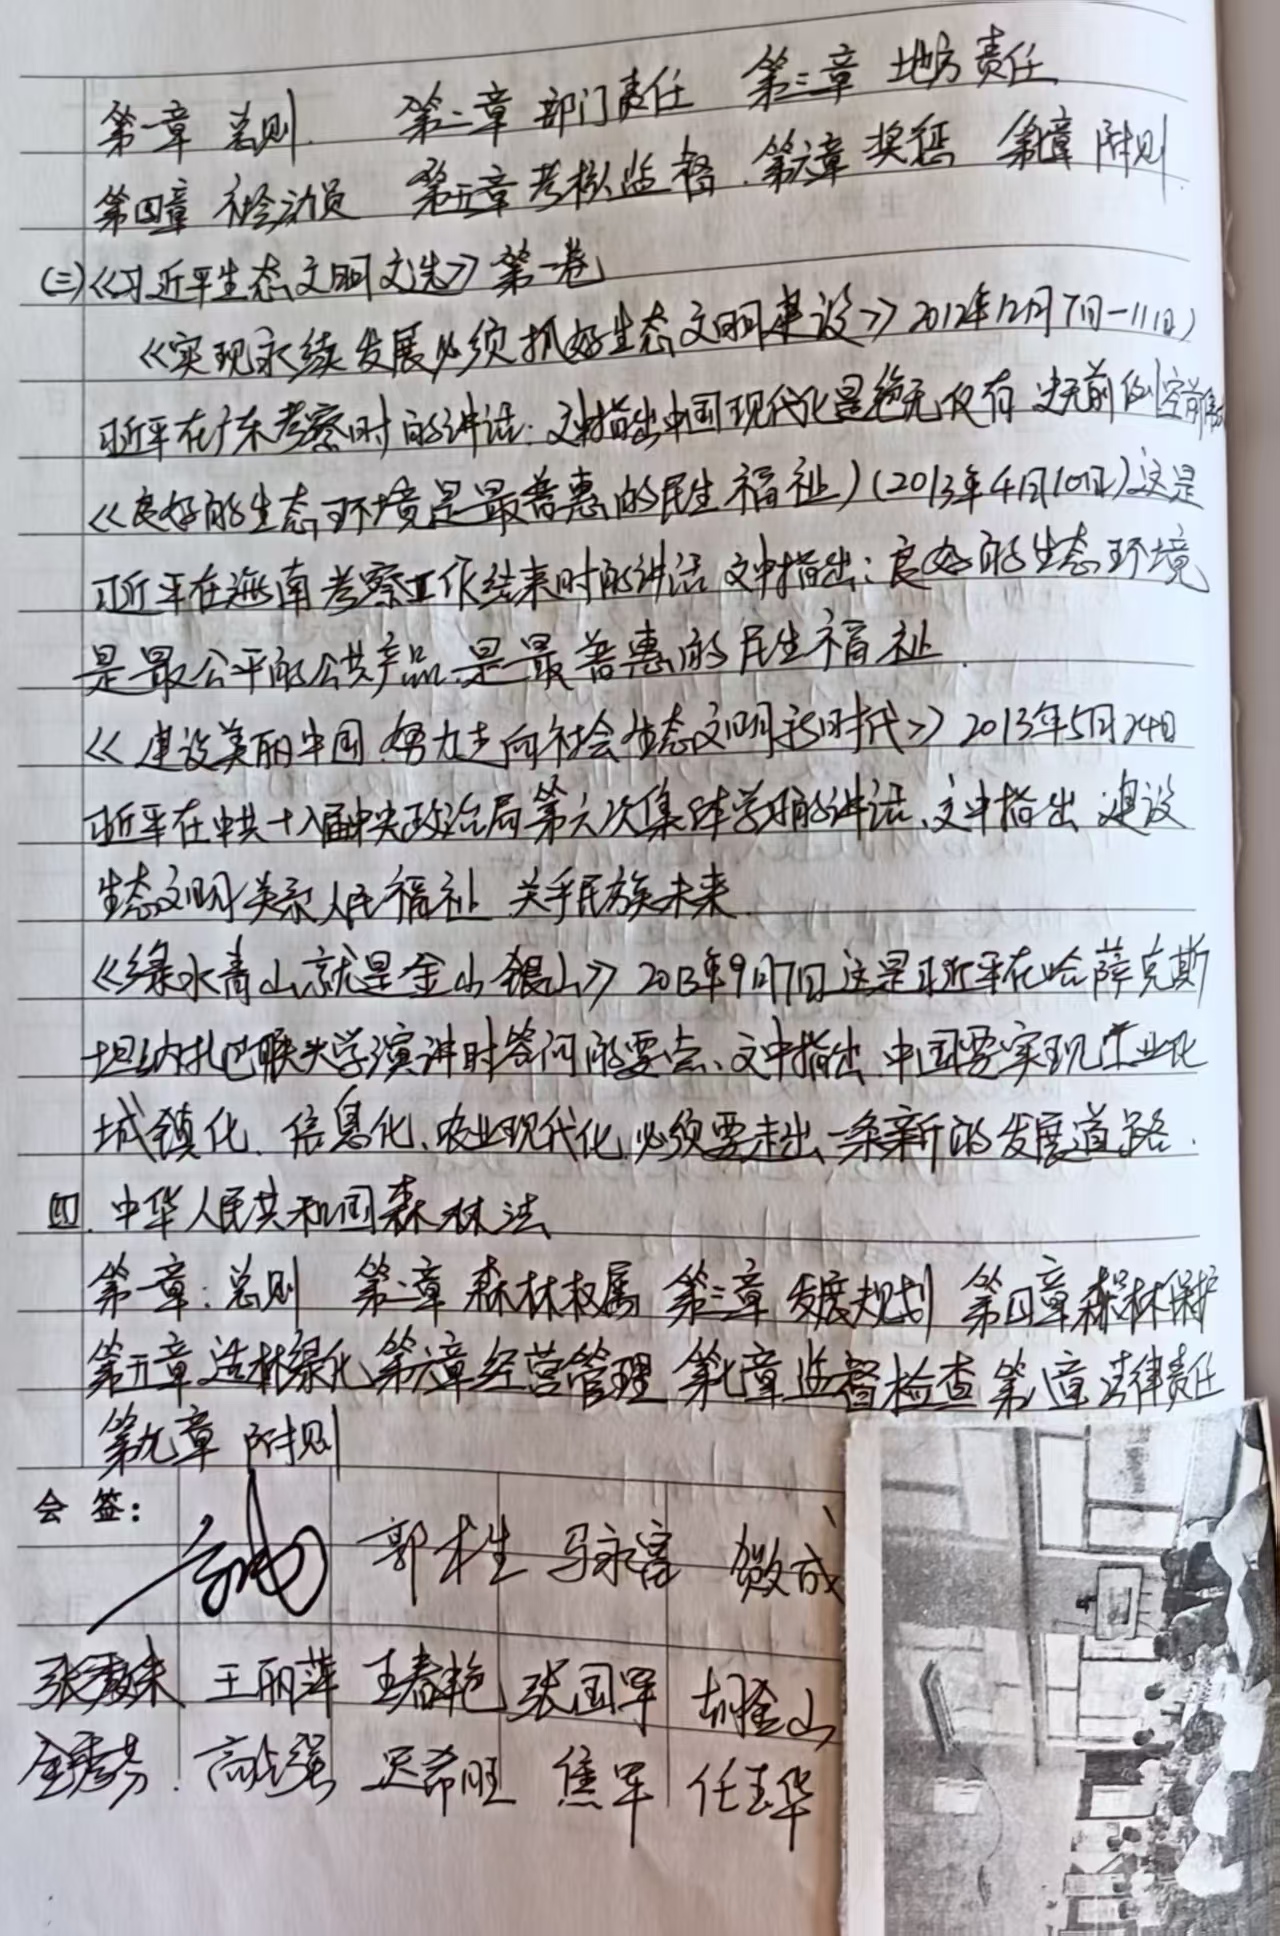 第一章 总则. 第二章 部门责任 第三章 地方责任
第四章 社会动员 第五章 考核监督. 第六章 奖惩 第七章 附则.
(三)《习近平生态文明文选》第一卷
《实现永续发展必须抓好生态文明建设》2012年12月7日-11日)
习近平在广东考察时的讲话. 文中指出中国现代化是绝无仅有 史无前例 空前
《良好的生态环境是最普惠的民生福祉》(2013年4月10日)这是
习近平在海南考察工作结束时的讲话 文中指出: 良好的生态环境
是最公平的公共产品.是最普惠的民生福祉.
《建设美丽中国.努力走向社会生态文明新时代》2013年5月24日
习近平在中共十八届中央政治局第六次集体学习的讲话、文中指出 建设
生态文明关系人民福祉 关乎民族未来
《绿水青山就是金山银山》2013年9月7日 这是习近平在哈萨克斯
坦纳扎巴耶夫大学演讲时答问的要点、文中指出 中国要实现工业化
城镇化、信息化、农业现代化 必须要走出一条新的发展道路.
四. 中华人民共和国森林法
第一章: 总则 第二章 森林权属 第三章 发展规划 第四章森林保护
第五章 造林绿化 第六章经营管理 第七章监督检查 第八章 法律责任
第九章 附则
会 签:
郭 生 马永富 成
张 王丽萍 王春艳 张国军 胡金山
金秀芬. 高 强 旺 焦军 任玉华